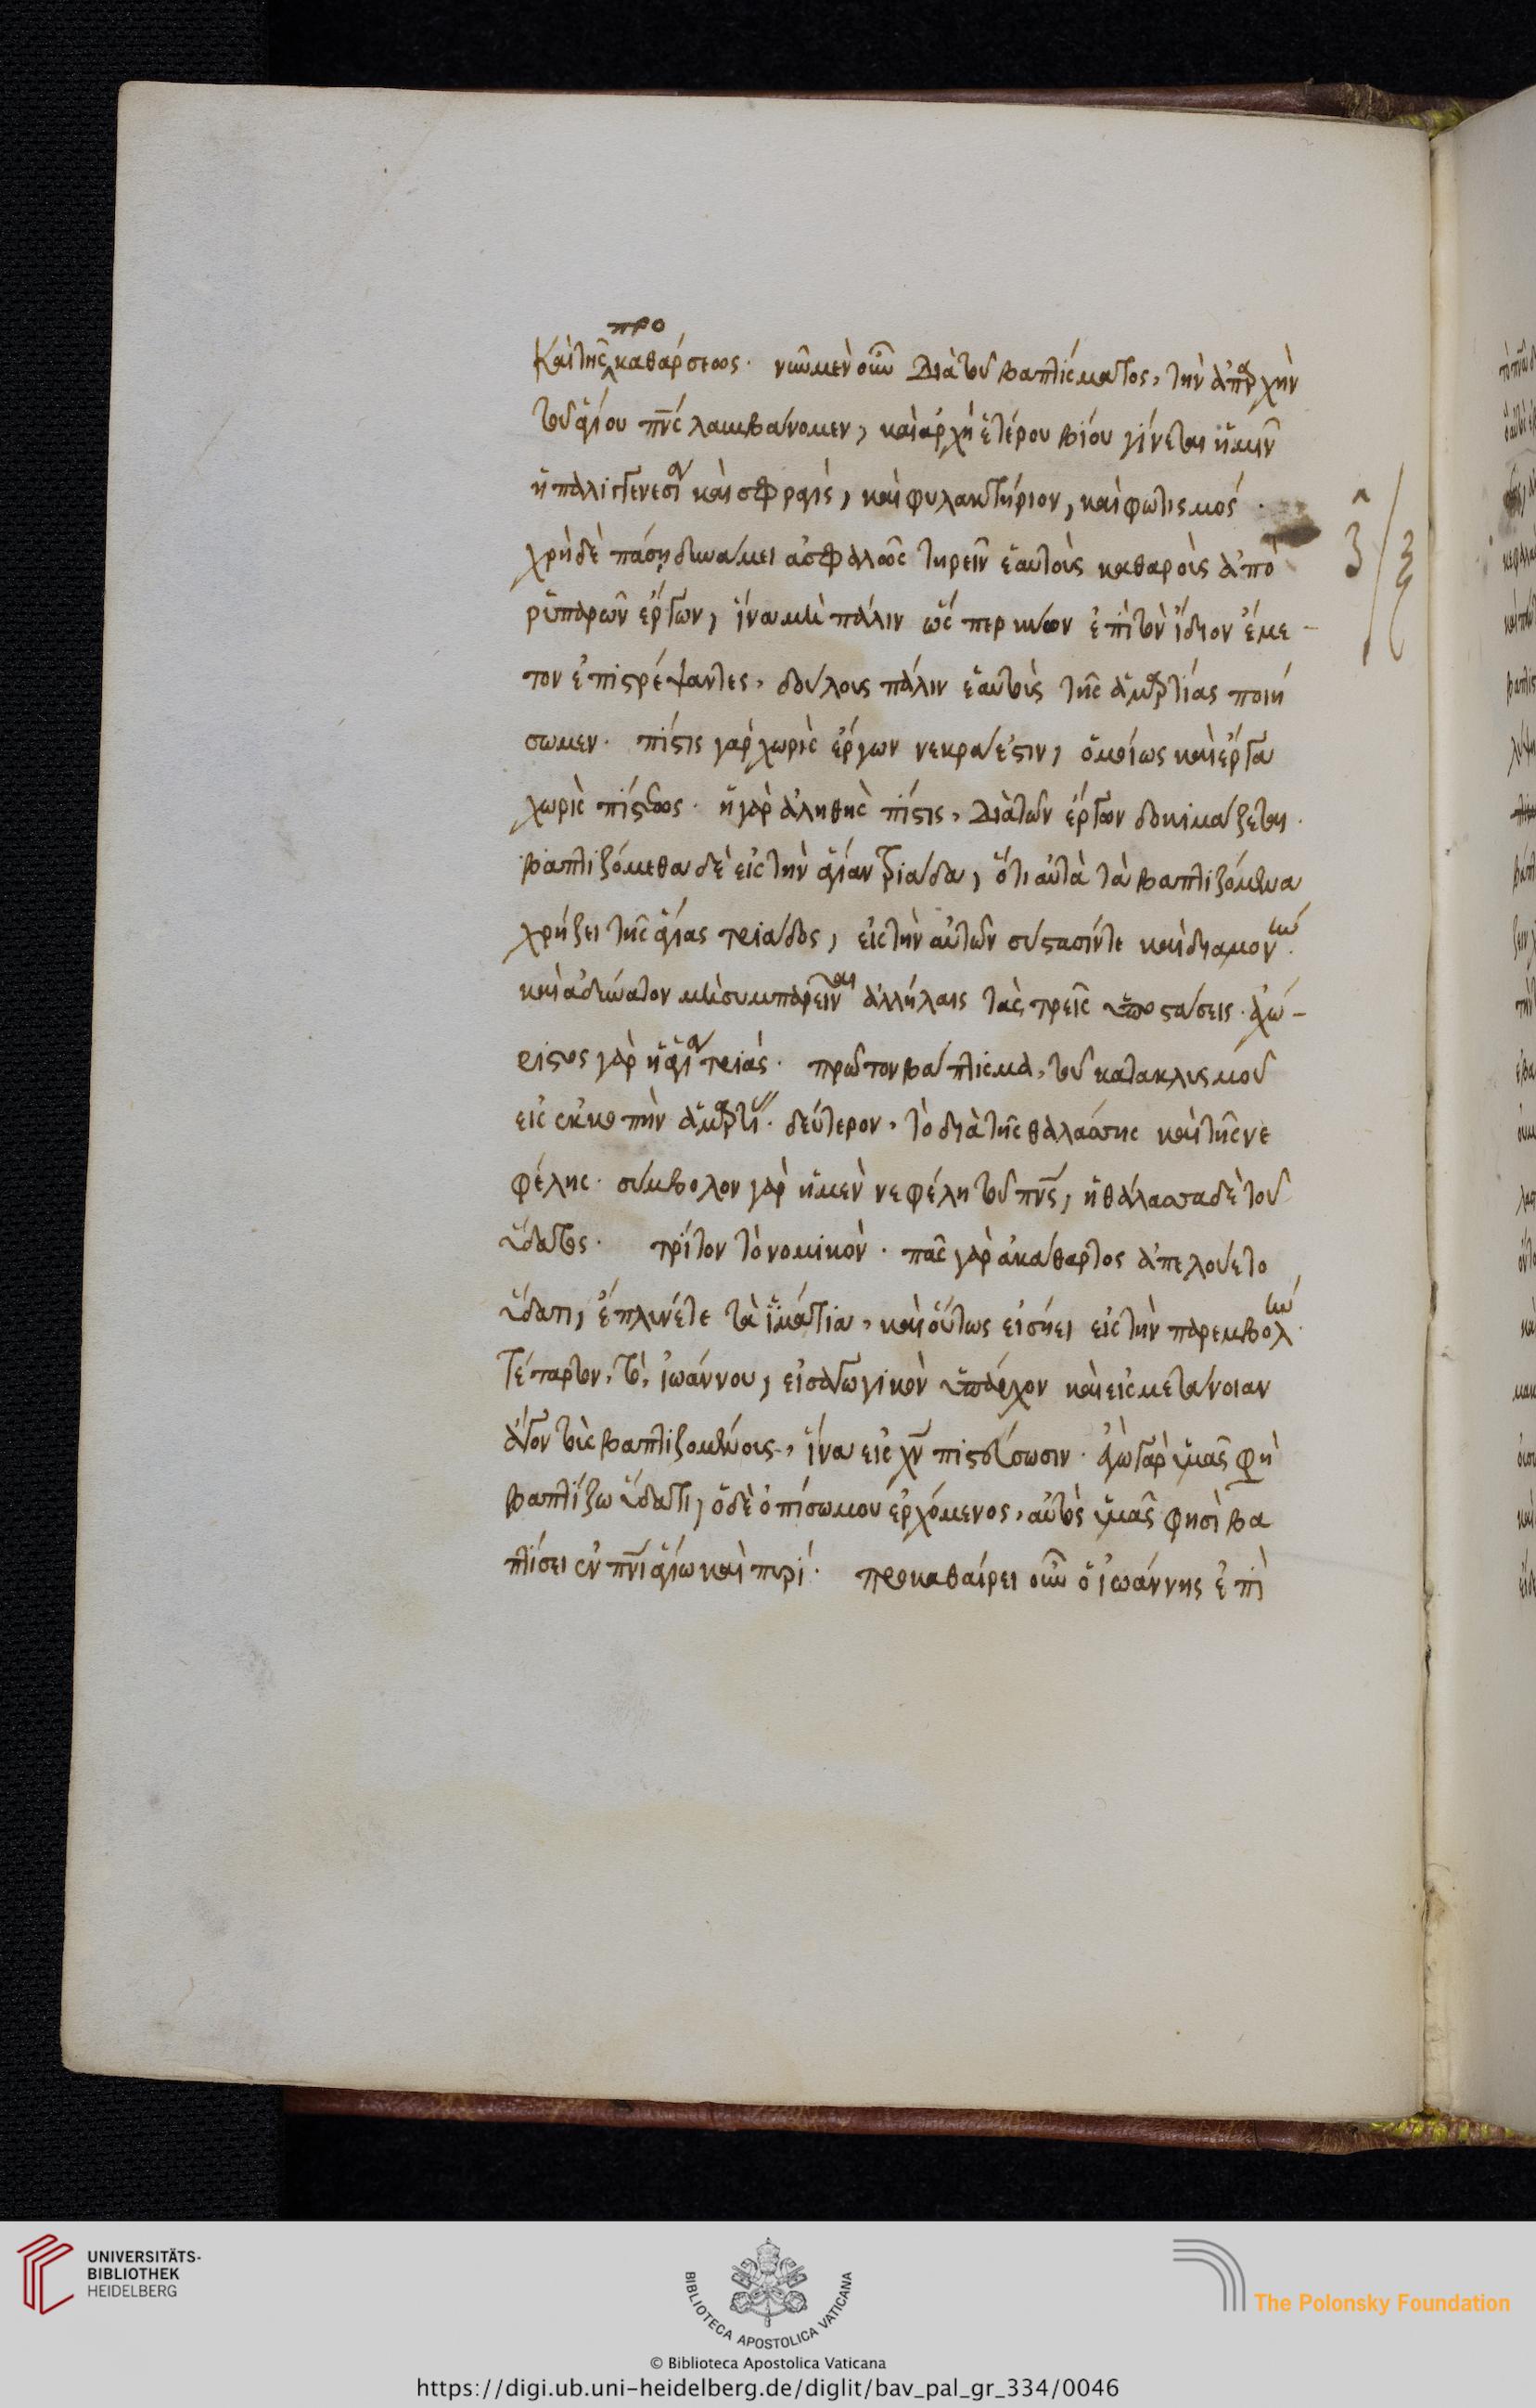 προ
Καὶ τῆς καθάρσεως· νῦν μὲν οὖν διὰ τοῦ βαπτίσματος, τὴν ἀπαρχὴν
τοῦ ἁγίου πνς λαμβάνομεν, καὶ ἀρχὴ ἑτέρου βίου γίνεται ἡμῖν
ἡ παλιγγενεσία καὶ σφραγὶς, καὶ φυλακτήριον, καὶ φωτισμός·
χρὴ δὲ πάσῃ δυνάμει ἀσφαλῶς τηρεῖν ἑαυτοὺς καθαροὺς ἀπὸ
ῥυπαρῶν ἔργων, ἵνα μὴ πάλιν ὥς περ κύων ἐπὶ τὸν ἴδιον ἔμε-
τον ἐπιστρέψαντες, δούλους πάλιν ἑαυτοὺς τῆς ἁμαρτίας ποιή
σωμεν· πίστις γὰρ χωρὶς ἔργων νεκρά ἐστιν, ὁμοίως καὶ ἔργα
χωρὶς πίστεως· ἡ γὰρ ἀληθὴς πίστις, διὰ τῶν ἔργων δοκιμάζεται·
βαπτιζόμεθα δὲ εἰς τὴν ἁγίαν τριάδα, ὅτι αὐτὰ τὰ βαπτιζόμενα
χρήζει τῆς ἁγίας τριάδος, εἰς τὴν αὐτῶν σύστασίν τε καὶ διαμονήν·
καὶ ἀδύνατον μὴ συμπαρεῖναι ἀλλήλαις τὰς τρεῖς ὑποστάσεις· ἀχώ-
ριστος γὰρ ἡ ἁγία τριάς· πρῶτον βάπτισμα, τοῦ κατακλυσμοῦ
εἰς ἐκκοπὴν ἁμαρτίας· δεύτερον, τὸ διὰ τῆς θαλάσσης καὶ τῆς νε
φέλης· σύμβολον γὰρ ἡ μὲν νεφέλη τοῦ πνς, ἡ θάλασσα δὲ τοῦ
ὕδατος· τρίτον τὸ νομικὸν· πᾶς γὰρ ἀκάθαρτος ἀπελούετο
ὕδατι, ἔπλυνέ τε τὰ ἱμάτια, καὶ οὕτως εἰσῄει εἰς τὴν παρεμβολήν·
Τέταρτον, τὸ, ἰωάννου, εἰσαγωγικὸν ὑπάρχον καὶ εἰς μετάνοιαν
ἄγον τοὺς βαπτιζομένους, ἵνα εἰς χν πιστεύσωσιν· ἐγὼ γὰρ ὑμᾶς φη
βαπτίζω ὕδατι, ὁ δὲ ὀπίσω μου ἐρχόμενος, αὐτὸς ὑμᾶς φησὶ βα
πτίσει ἐν πνι ἁγίω καὶ πυρί· προκαθαίρει οὖν ὁ ἰωάννης ἐπὶ
UNIVERSITÄTS-
BIBLIOTHEK
HEIDELBERG
BIBLIOTECA APOSTOLICA VATICANA
The Polonsky Foundation
© Biblioteca Apostolica Vaticana
https://digi.ub.uni-heidelberg.de/diglit/bav_pal_gr_334/0046